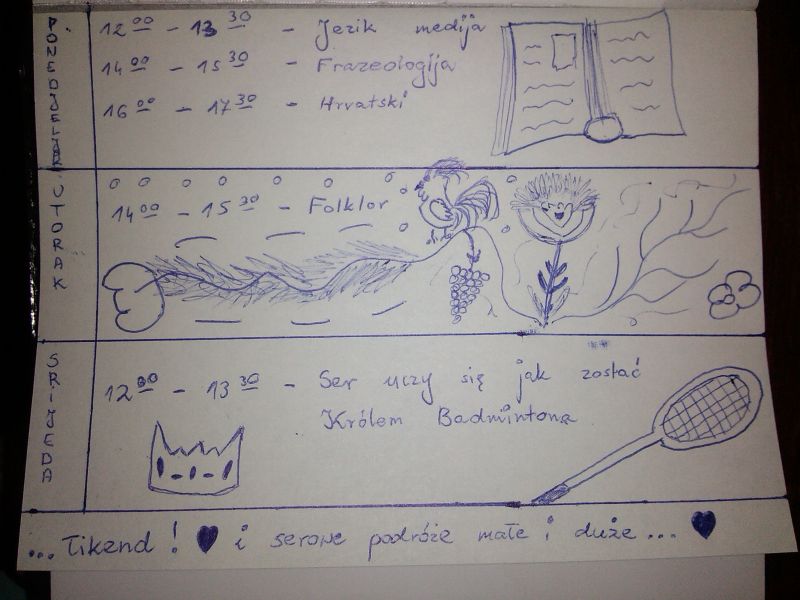 PONEDJELJAK
12 00 - 13 30 - Jezik medija
14 00 - 15 30 - Frazeologija
16 00 - 17 30 - Hrvatski
UTORAK
14 00 - 15 30 - Folklor
SRIJEDA
12 00 - 13 30 - Ser uczy się jak zostać
Królem Badmintona
...Tikend! ♥ i serowe podróże małe i duże... ♥